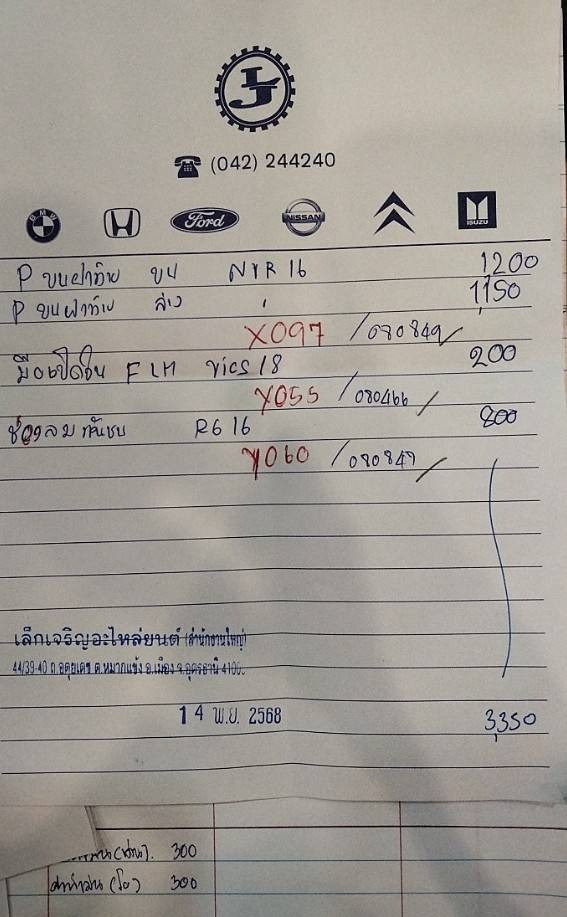 LJ
(042) 244240
BMW
Ford
NISSAN
ISUZU
P ขนฝาท้าย บน NYR 16 1200
P ขนฝาท้าย ล่าง " 1,150
X097 /080849/
มือเปิดใน FLM vios 18 200
Y055 /080466/
ช่องลม กันชน RG 16 800
Y060 /080847/
เล็กเจริญอะไหล่ยนต์ (สำนักงานใหญ่)
44/39-40 ถ.อดุยเดช ต.หมากแข้ง อ.เมือง จ.อุดรธานี 4100
14 พ.ย. 2568
3,350
300
(โอ) 300